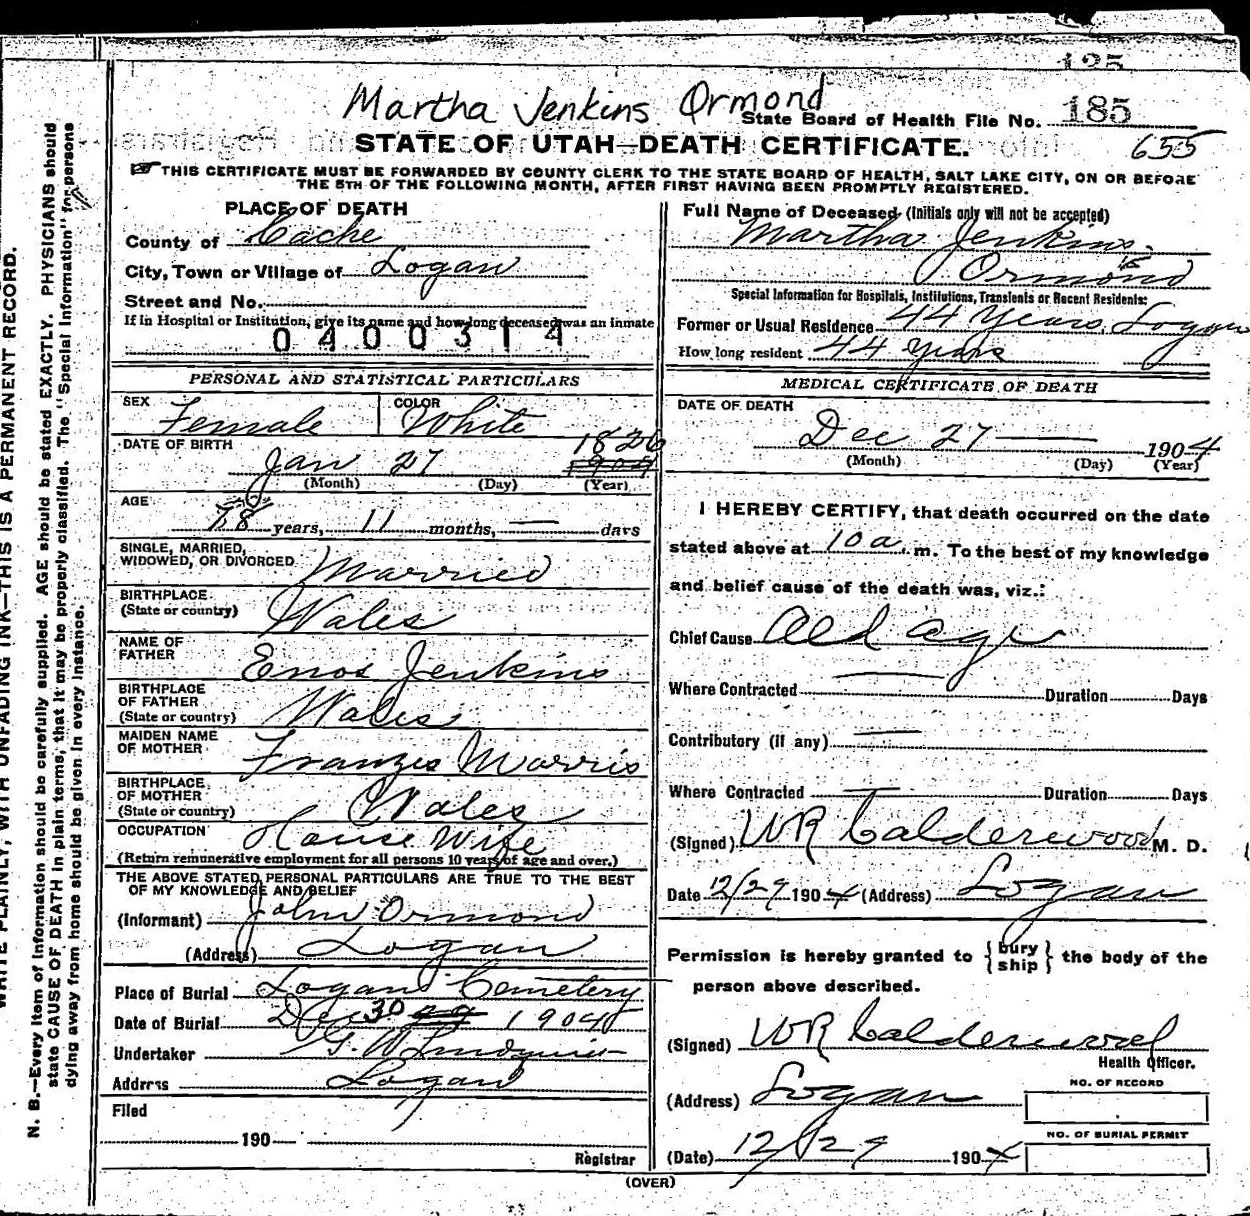 185
Martha Jenkins Ormond
State Board of Health File No. 185
STATE OF UTAH—DEATH CERTIFICATE.
655
THIS CERTIFICATE MUST BE FORWARDED BY COUNTY CLERK TO THE STATE BOARD OF HEALTH, SALT LAKE CITY, ON OR BEFORE
THE 5TH OF THE FOLLOWING MONTH, AFTER FIRST HAVING BEEN PROMPTLY REGISTERED.
PLACE OF DEATH
County of Cache
City, Town or Village of Logan
Street and No.
If in Hospital or Institution, give its name and how long deceased was an inmate
0400314
PERSONAL AND STATISTICAL PARTICULARS
SEX Female COLOR White
DATE OF BIRTH Jan 27 1826 1904
(Month) (Day) (Year)
AGE 78 years, 11 months, — days
SINGLE, MARRIED,
WIDOWED, OR DIVORCED Married
BIRTHPLACE
(State or country) Wales
NAME OF
FATHER Enos Jenkins
BIRTHPLACE
OF FATHER
(State or country) Wales
MAIDEN NAME
OF MOTHER Franzes Morris
BIRTHPLACE
OF MOTHER
(State or country) Wales
OCCUPATION House Wife
(Return remunerative employment for all persons 10 years of age and over.)
THE ABOVE STATED PERSONAL PARTICULARS ARE TRUE TO THE BEST
OF MY KNOWLEDGE AND BELIEF
(Informant) John Ormond
(Address) Logan
Place of Burial Logan Cemetery
Date of Burial Dec 30 29 1904
Undertaker G. W Lindquist
Address Logan
Filed
190
Registrar
Full Name of Deceased (Initials only will not be accepted)
Martha Jenkins
Ormond
Special Information for Hospitals, Institutions, Transients or Recent Residents:
Former or Usual Residence 44 Years, Logan
How long resident 44 years
MEDICAL CERTIFICATE OF DEATH
DATE OF DEATH
Dec 27 — 1904
(Month) (Day) (Year)
I HEREBY CERTIFY, that death occurred on the date
stated above at 10 a. m. To the best of my knowledge
and belief cause of the death was, viz.:
Chief Cause Old age
Where Contracted — Duration Days
Contributory (if any) —
Where Contracted — Duration Days
(Signed) WR Calderwood M. D.
Date 12/29 1904 (Address) Logan
Permission is hereby granted to {bury ship} the body of the
person above described.
(Signed) WR Calderwood
Health Officer.
(Address) Logan
NO. OF RECORD
NO. OF BURIAL PERMIT
(Date) 12/29 1904
(OVER)
WRITE PLAINLY, WITH UNFADING INK—THIS IS A PERMANENT RECORD.
N. B.—Every item of information should be carefully supplied. AGE should be stated EXACTLY. PHYSICIANS should
state CAUSE OF DEATH in plain terms, that it may be properly classified. The "Special Information" for persons
dying away from home should be given in every instance.